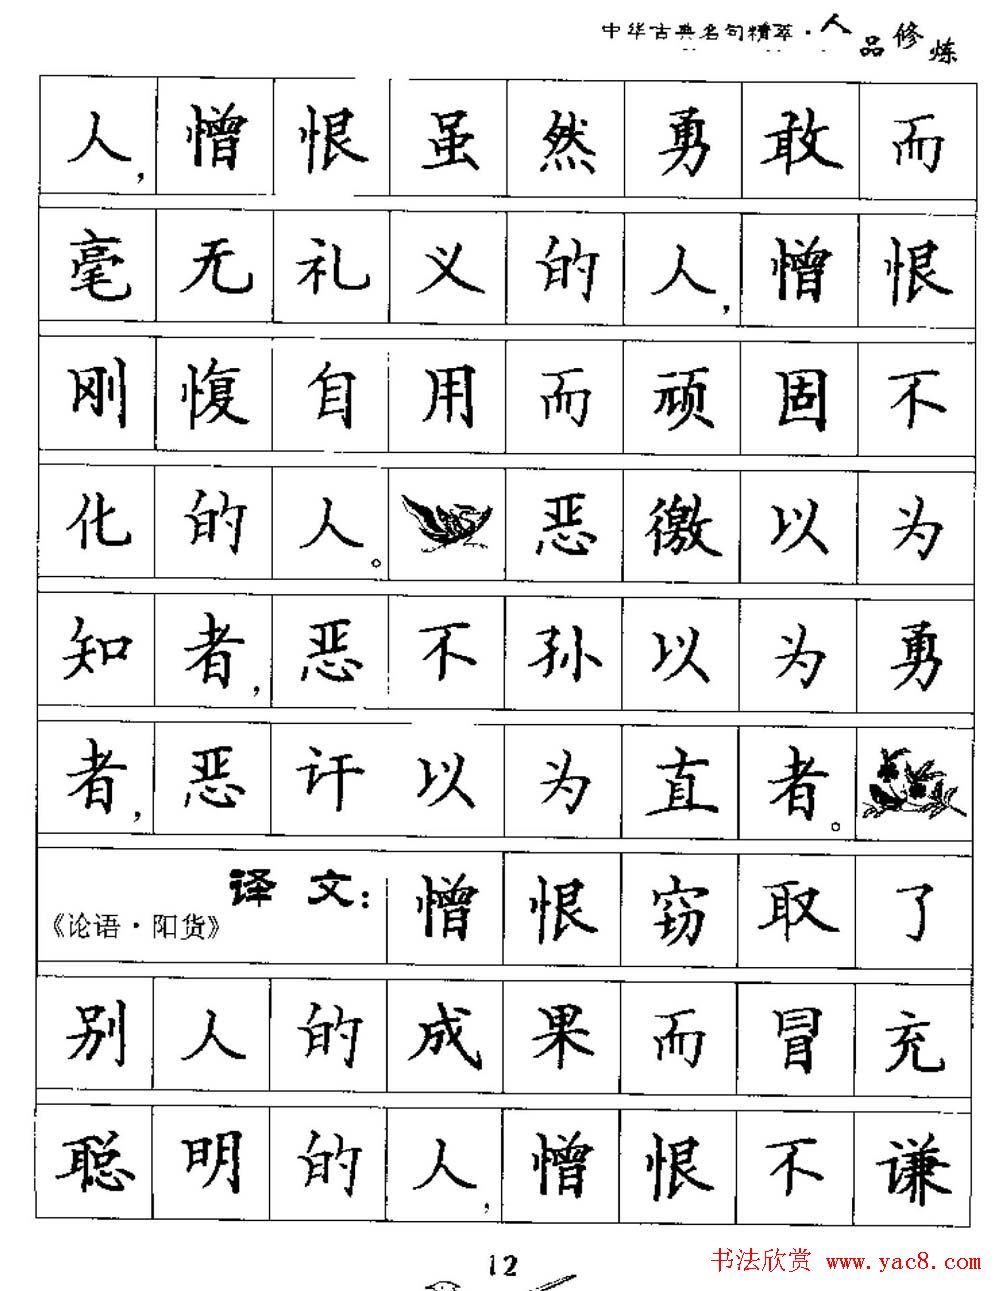 中华古典名句精萃·人品修炼
人,憎恨虽然勇敢而
毫无礼义的人,憎恨
刚愎自用而顽固不
化的人。恶徼以为
知者,恶不孙以为勇
者,恶讦以为直者。
《论语·阳货》译文:憎恨窃取了
别人的成果而冒充
聪明的人,憎恨不谦
12
书法欣赏 www.yac8.com